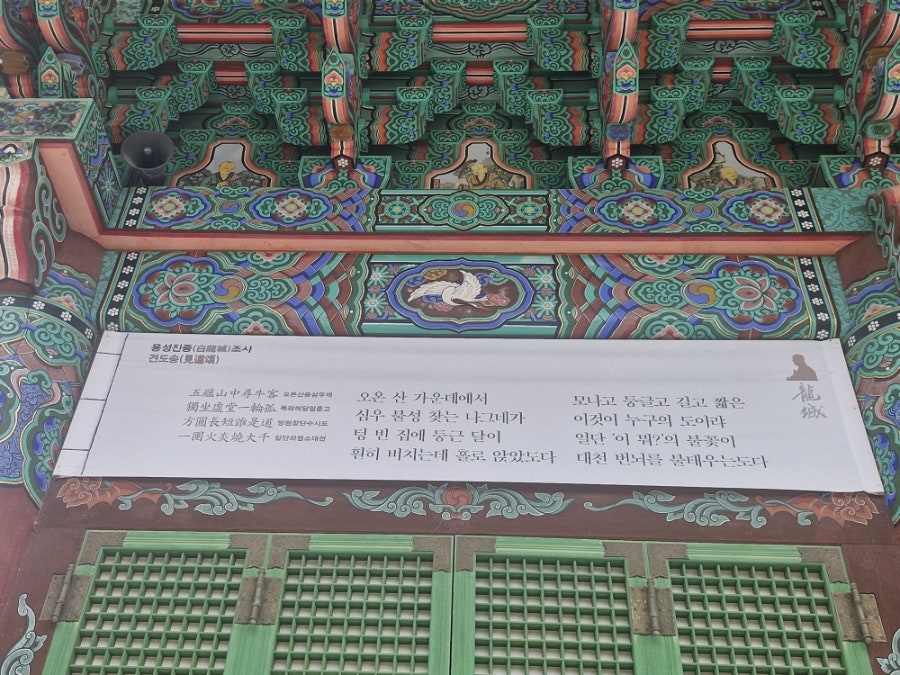 용성진종(白龍城)조사
견도송(見道頌)
五蘊山中尋牛客 오온산중심우객
獨坐虛堂一輪孤 독좌허당일륜고
方圓長短誰是道 방원장단수시도
一團火炎燒大千 일단화염소대천
오온 산 가운데에서
심우 불성 찾는 나그네가
텅 빈 집에 둥근 달이
훤히 비치는데 홀로 앉았도다
모나고 둥글고 길고 짧은
이것이 누구의 도이랴
일단 '이 뭐?'의 불꽃이
대천 번뇌를 불태우는도다
龍城